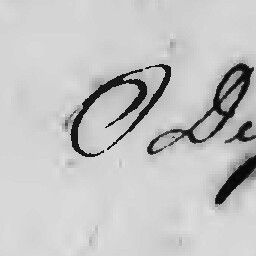 O De